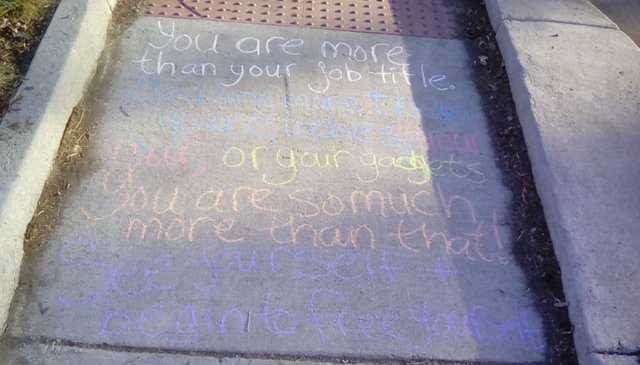 You are more
than your job title.
You are more than
your clothes, your
car, or your gadgets
You are so much
more than that!
See yourself +
begin to free yourself